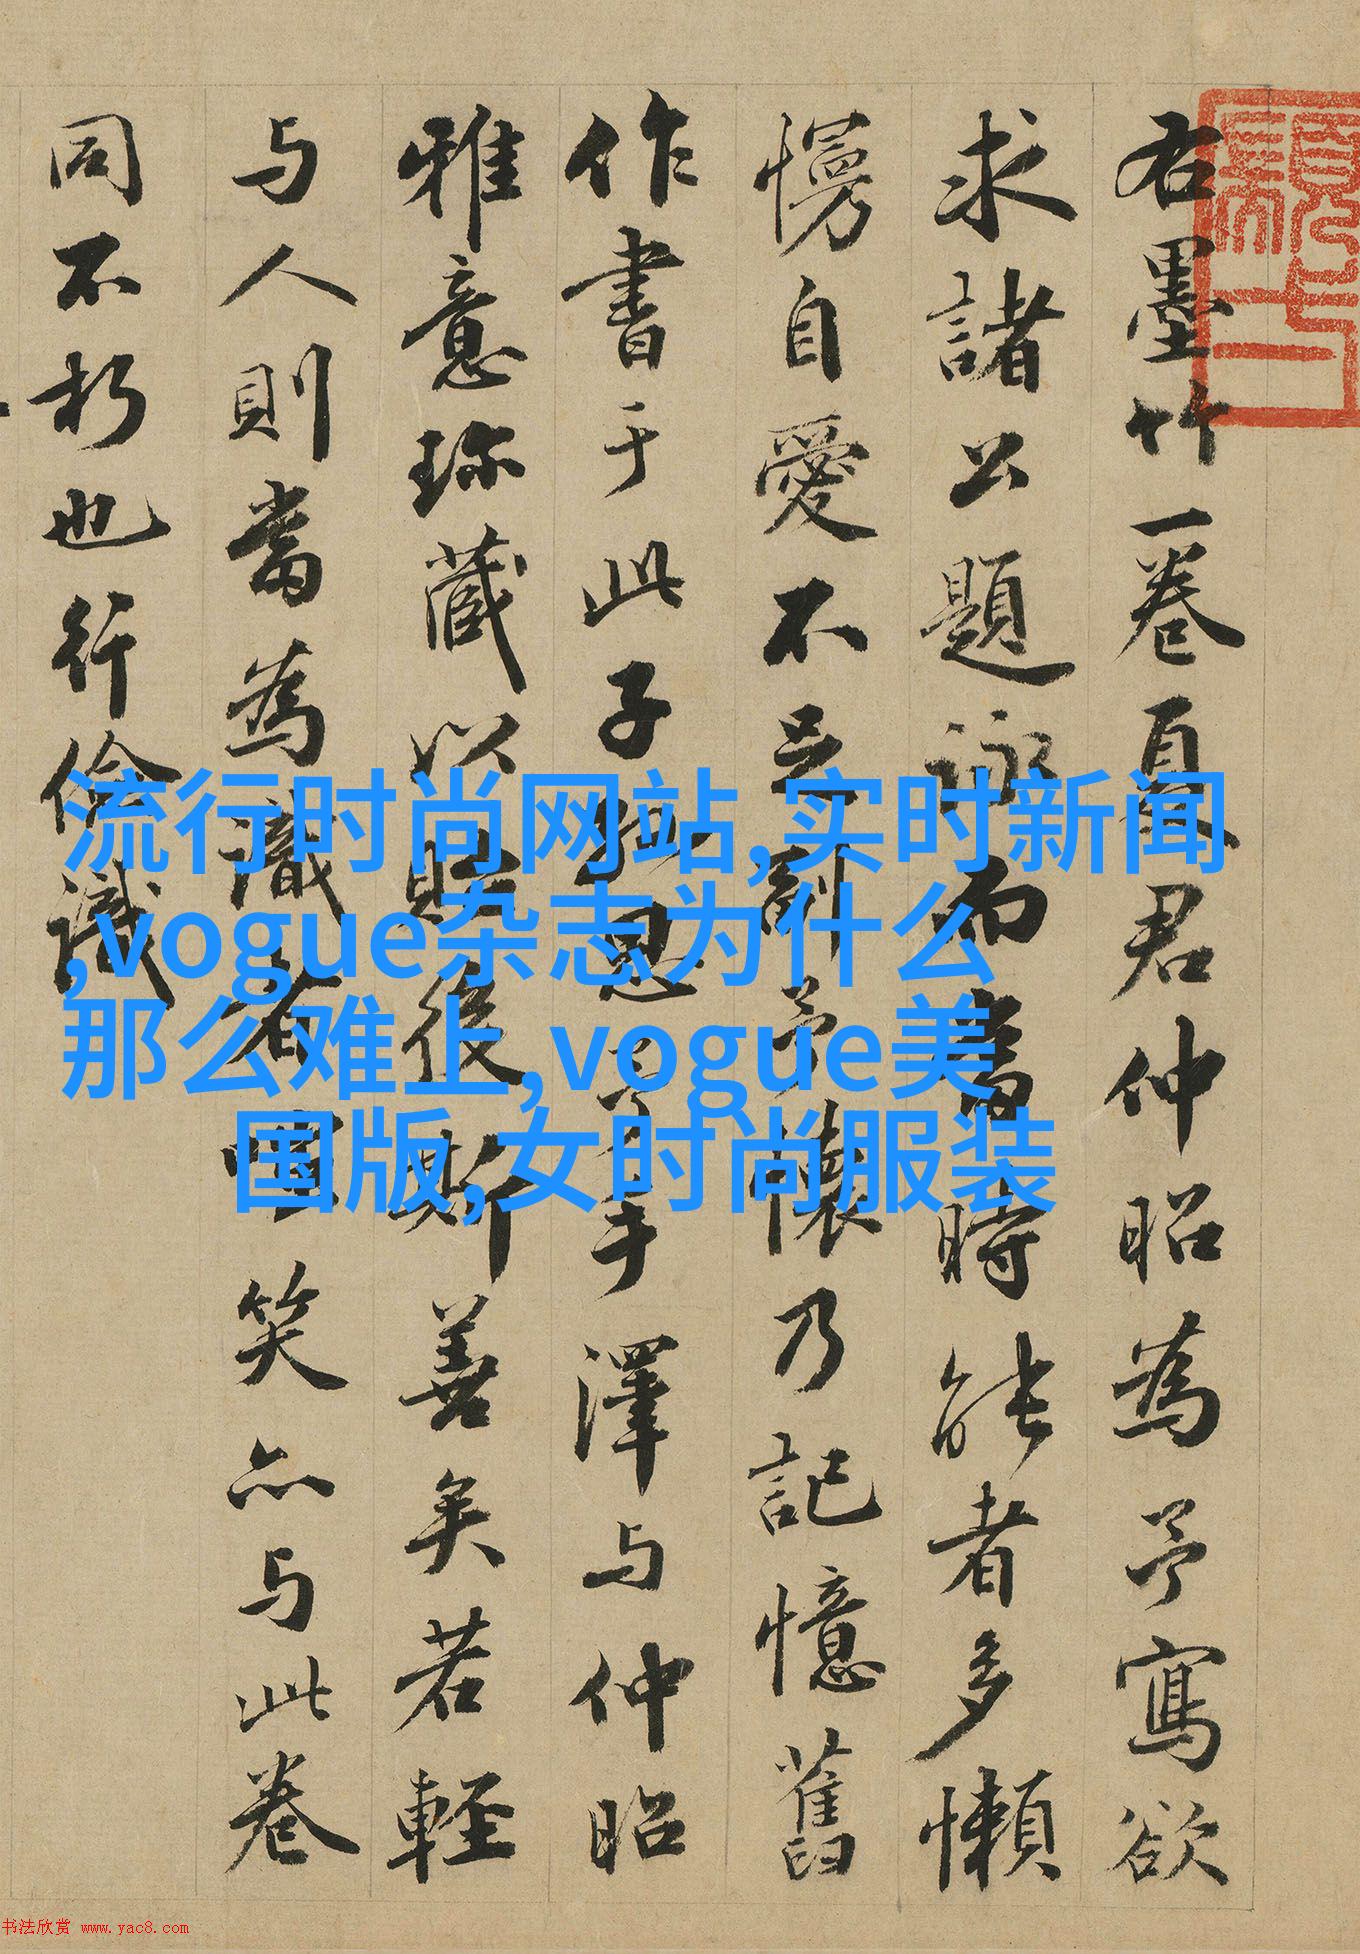 右墨竹一卷夏君仲昭為予寫欲
求諸公題詠而書時能者多懶
慢自愛不副予懷乃記憶舊
作書于此子孫思予手澤与仲昭
雅意珎藏以貽後斯善矣若輕
与人則當為識者嗤笑亦与此卷
同不朽也行儉識
流行时尚网站,实时新闻
,vogue杂志为什么
那么难上,vogue美
国版,女时尚服装
书法欣赏 www.yac8.com